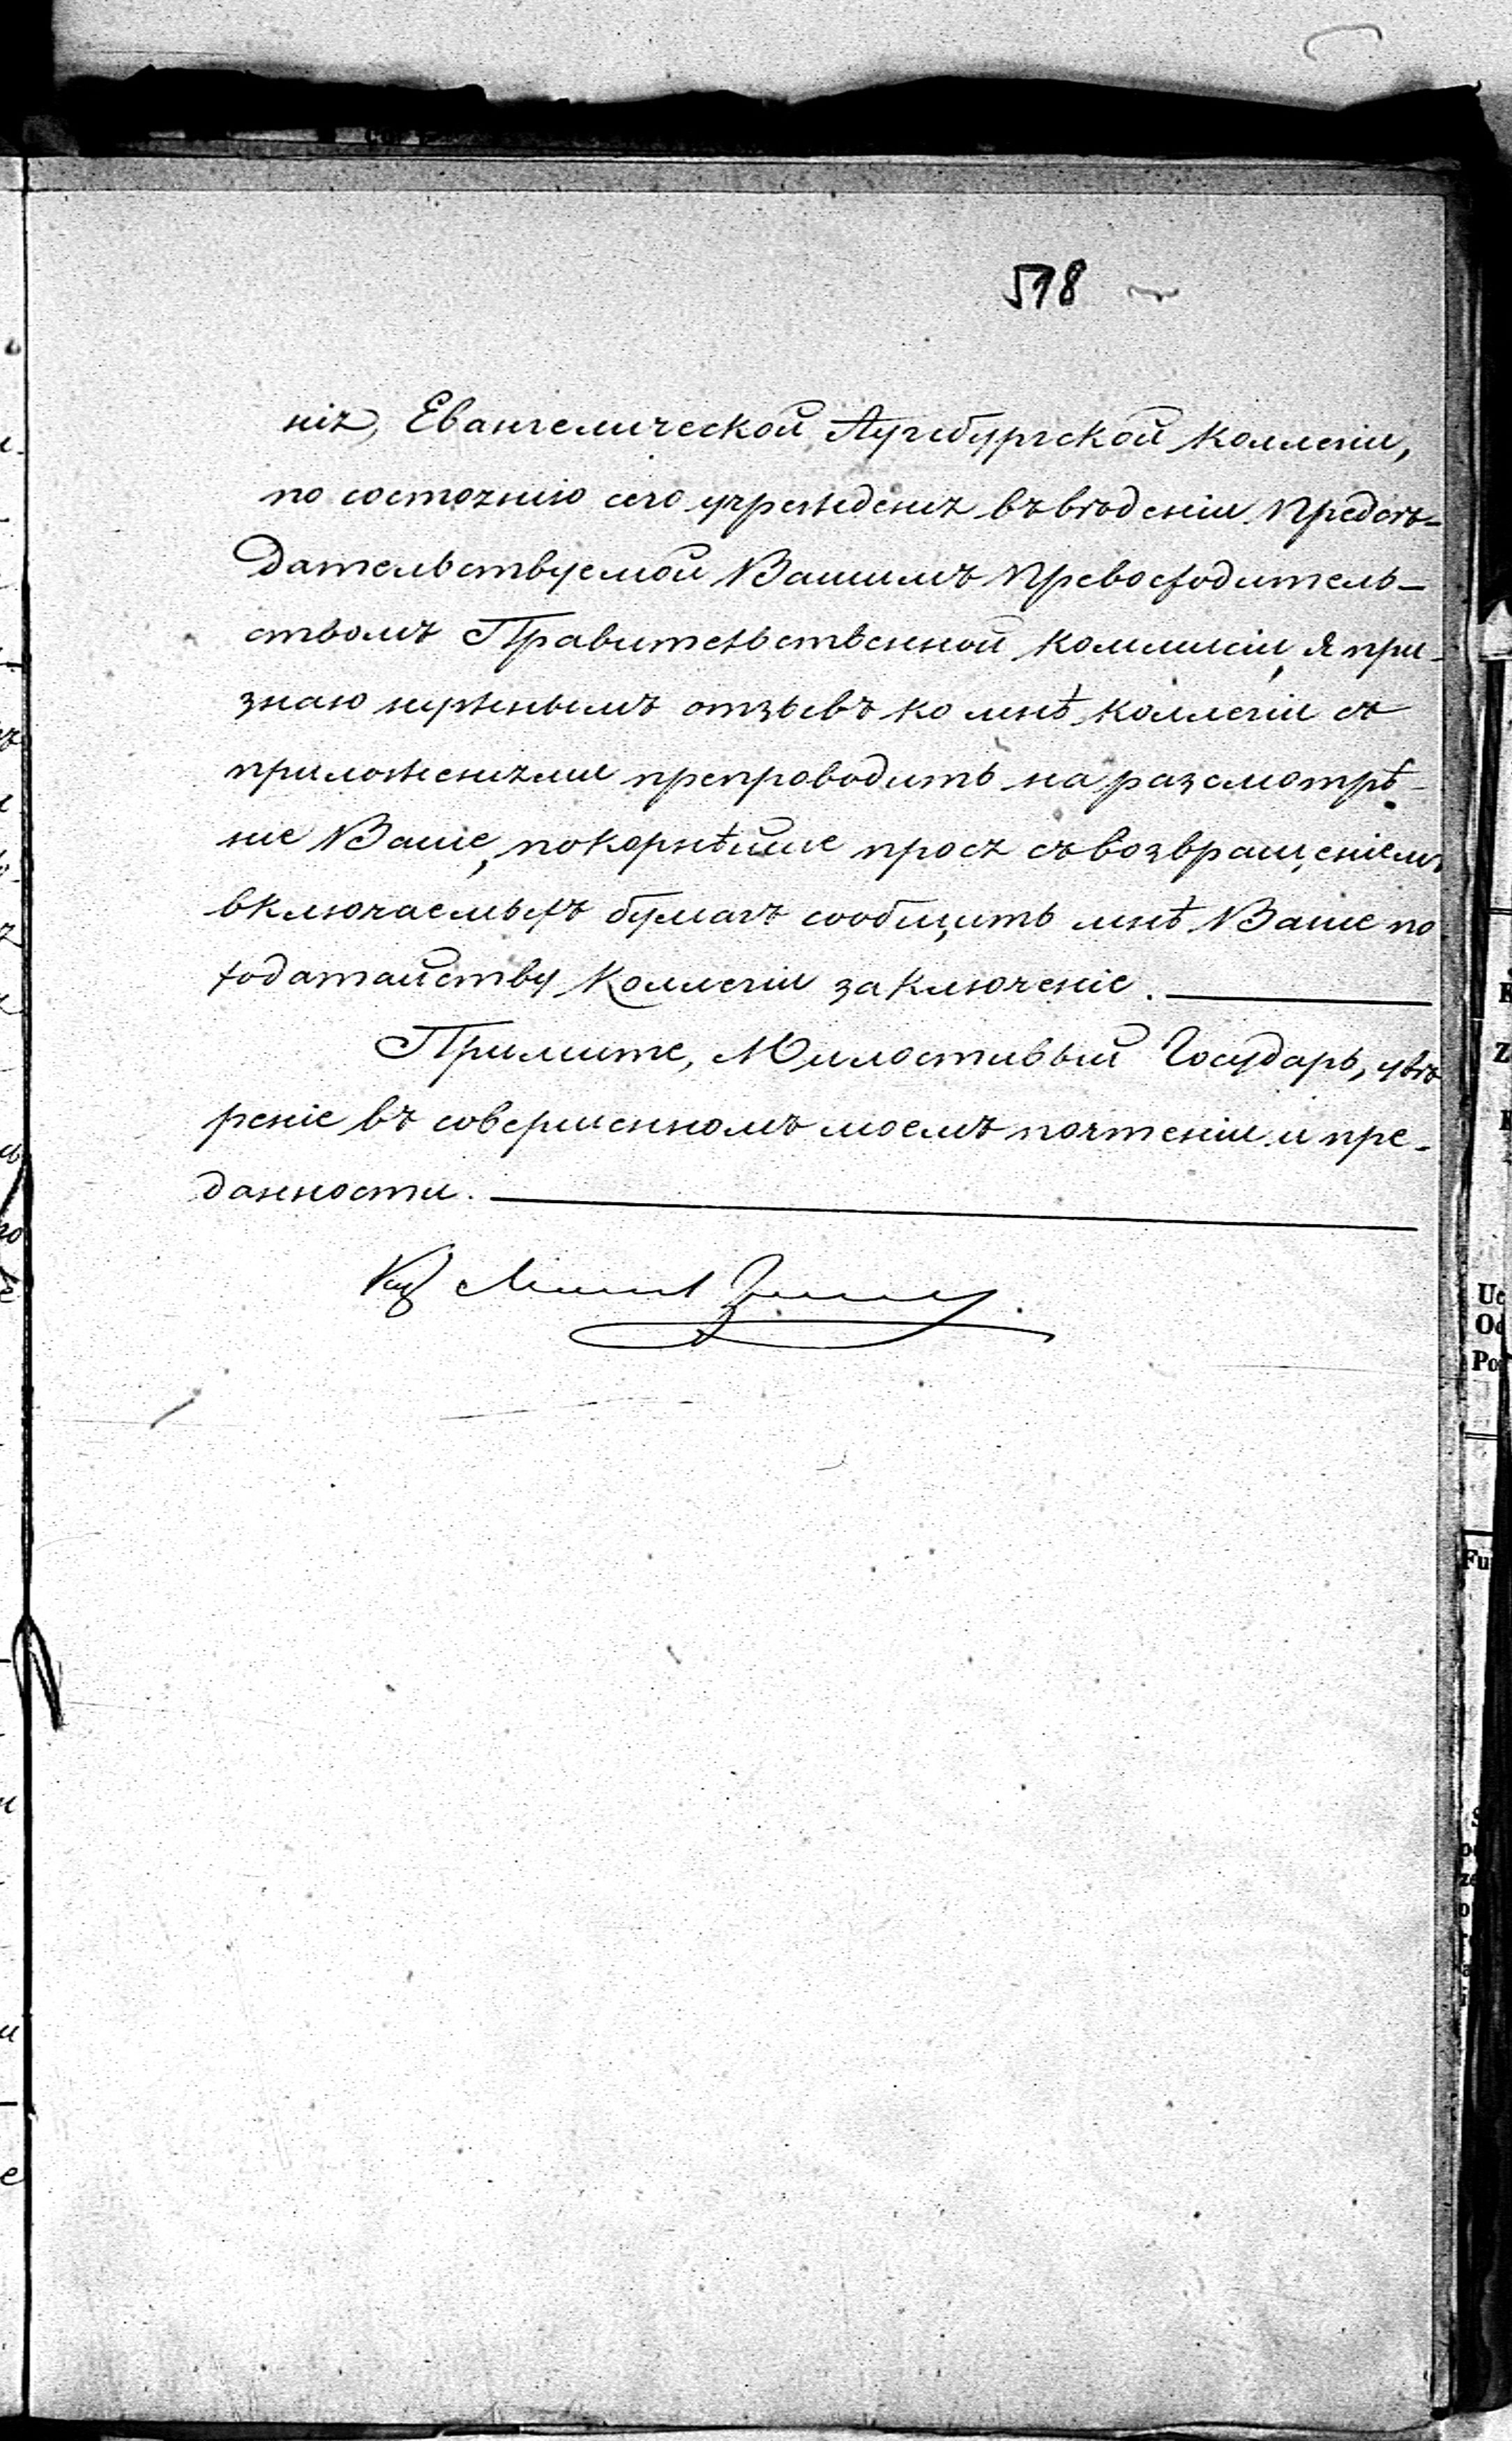 518
нія, Евангелической Аугсбургской Коллегіи,
по состоянію сего учрежденія въ вѣденіи Предсѣ-
дательствуемой Вашимъ Превосходитель-
ствомъ Правительственной Коммисіи, я при-
знаю нужнымъ отзывъ ко мнѣ Коллегіи съ
приложеніями препроводить на разсмотрѣ-
ніе Ваше, покорнѣйше прося съ возвращеніемъ
включаемыхъ бумагъ сообщить мнѣ Ваше по
ходатайству Коллегіи заключеніе.
Примите, Милостивый Государь, увѣ
реніе въ совершенномъ моемъ почтеніи и пре-
данности.